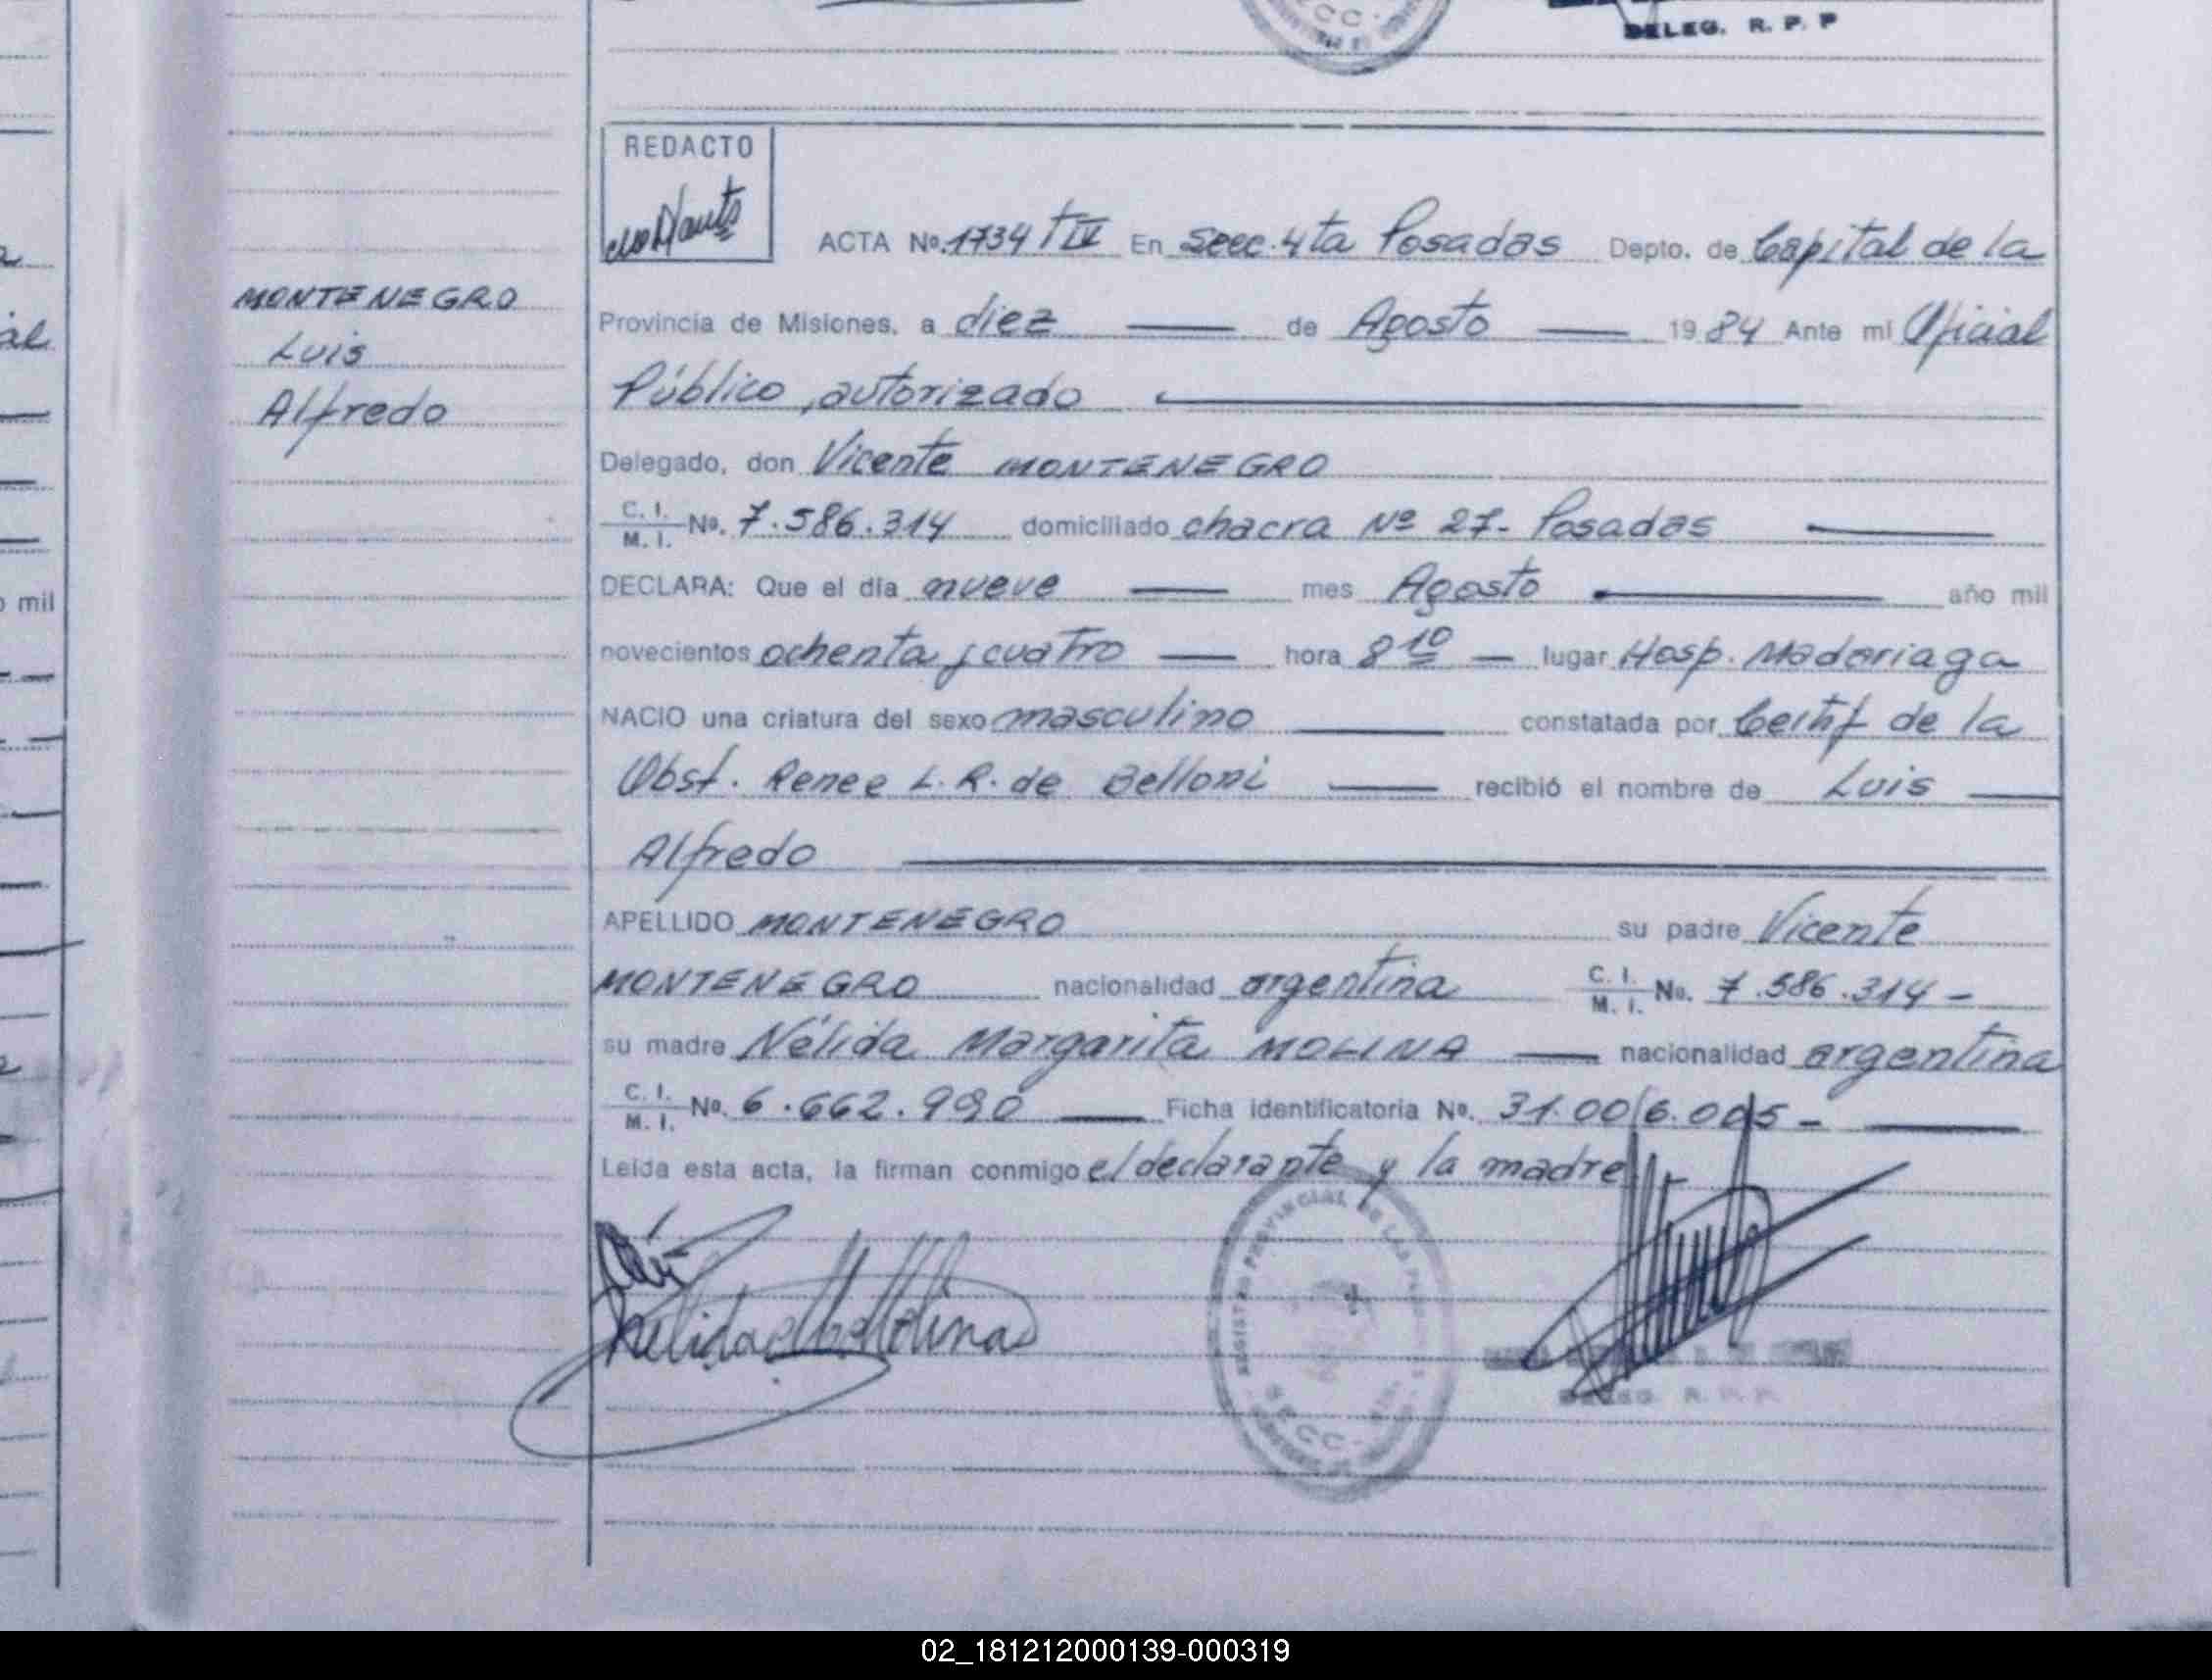 DELEG. R. P. P
REDACTO
ACTA No. 1734 TIV En Secc. 4ta Posadas Depto. de Capital de la
MONTENEGRO
Luis
Alfredo
Provincia de Misiones, a diez de Agosto 1984 Ante mi Oficial
Público, autorizado
Delegado, don Vicente MONTENEGRO
C. I. M. I. No. 7.586.314 domiciliado chacra Nº 27- Posadas
DECLARA: Que el día nueve mes Agosto año mil
novecientos ochenta y cuatro hora 8 10 lugar Hosp. Madariaga
NACIO una criatura del sexo masculino constatada por Certif de la
Obst. Renee L. R. de Belloni recibió el nombre de Luis
Alfredo
APELLIDO MONTENEGRO su padre Vicente
MONTENEGRO nacionalidad argentina C. I. M. I. No. 7.586.314-
su madre Nélida Margarita MOLINA nacionalidad argentina
C. I. M. I. No. 6.662.990 Ficha identificatoria No. 31.00/6.005-
Leída esta acta, la firman conmigo el declarante y la madre
REGISTRO PROVINCIAL DE LAS
DELEG. R. P. P.
mil
02_181212000139-000319